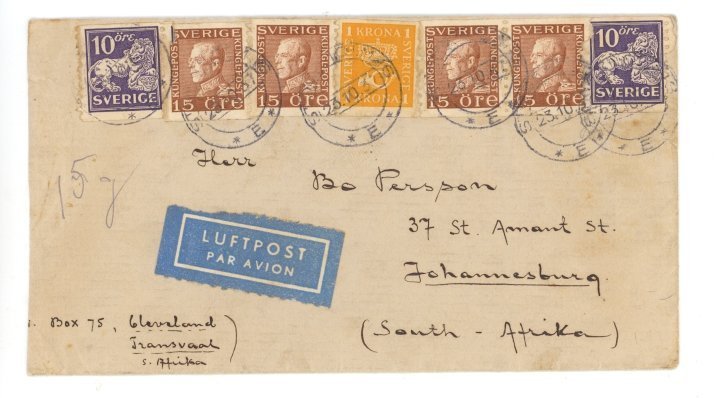 10 ÖRE SVERIGE
SVERIGE KUNGEPOST 15 ÖRE
SVERIGE KUNGEPOST 15 ÖRE
1 KRONA 1 SVERIGE KRONA 1
SVERIGE KUNGEPOST 15 ÖRE
SVERIGE KUNGEPOST 15 ÖRE
10 ÖRE SVERIGE
23.10
* E *
15 g
Herr
Bo Persson
37 St. Amant St.
Johannesburg.
(South - Afrika)
LUFTPOST
PAR AVION
Box 75, Cleveland
Transvaal
S. Afrika)